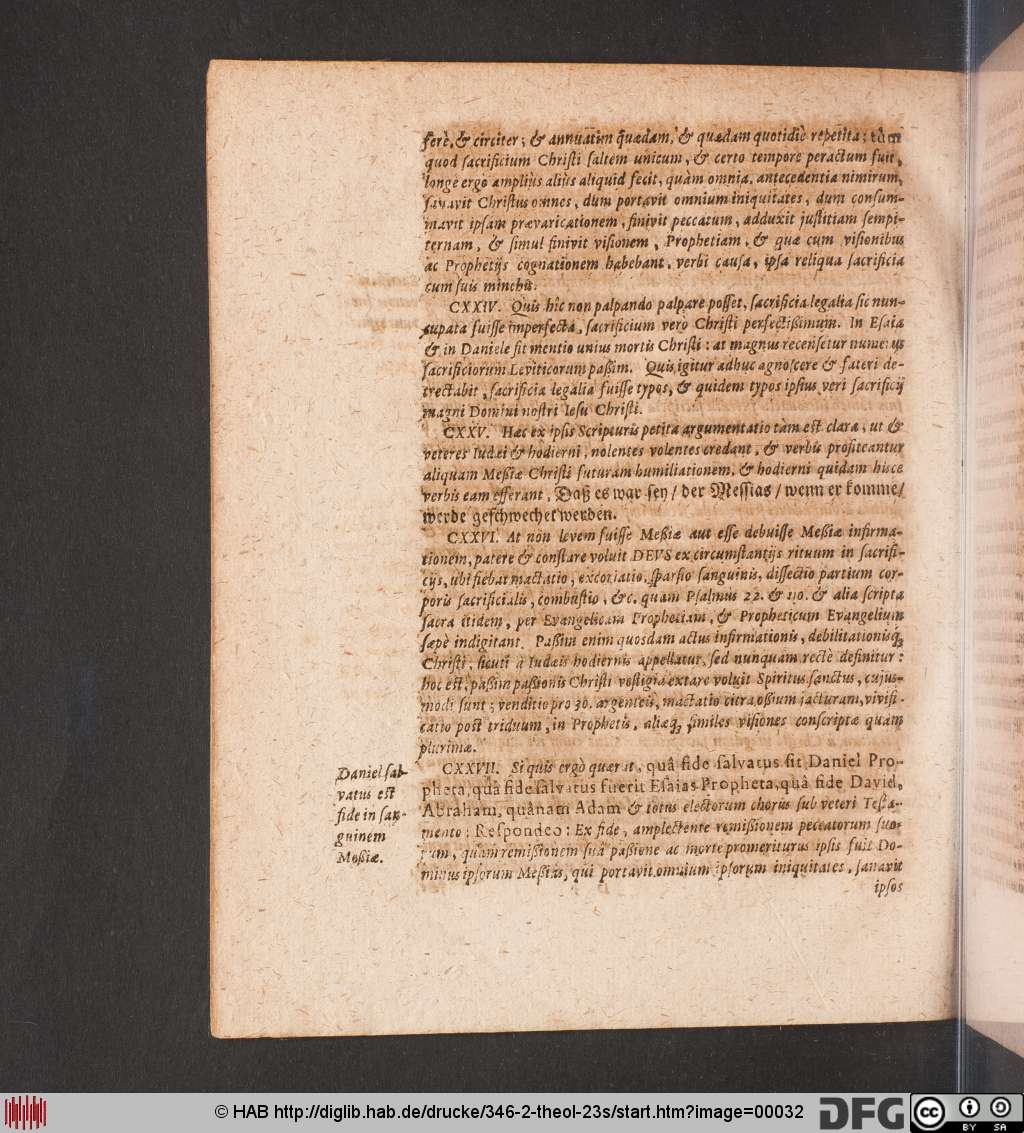 ferè, & circiter; & annuatim quædam, & quædam quotidiè repetita; tùm
quod sacrificium Christi saltem unicum, & certo tempore peractum fuit,
longè ergo ampliùs aliùs aliquid fecit, quàm omnia, antecedentia nimirum,
sanavit Christus omnes, dum portavit omnium iniquitates, dum consum-
mavit ipsam prævaricationem, finivit peccatum, adduxit justitiam sempi-
ternam, & simul finivit visionem, Prophetiam, & quæ cum visionibus
ac Prophetijs cognationem habebant, verbi causa, ipsa reliqua sacrificia
cum suis minchis.
CXXIV. Quis hîc non palpando palpare posset, sacrificia legalia sic nun-
cupata fuisse imperfecta, sacrificium verò Christi perfectißimum. In Esaiæ
& in Daniele fit mentio unius mortis Christi: at magnus recensetur numerus
sacrificiorum Leviticorum paßim. Quis igitur adhuc agnoscere & fateri de-
trectabit, sacrificia legalia fuisse typos, & quidem typos ipsius veri sacrificij
magni Domini nostri Iesu Christi.
CXXV. Hæc ex ipsis Scripturis petita argumentatio tàm est clara, ut &
veteres Iudæi & hodierni, nolentes volentes credant, & verbis profiteantur
aliquam Meßiæ Christi futuram humiliationem, & hodierni quidam hisce
verbis eam efferant, Daß es war sey / der Messias / wenn er komme /
werde geschwechet werden.
CXXVI. At non levem fuisse Meßiæ aut esse debuisse Meßiæ infirma-
tionem, patere & constare voluit DEVS ex circumstantijs rituum in sacrifi-
cijs, ubi fiebat mactatio, excoriatio, sparsio sanguinis, dissectio partium cor-
poris sacrificialis, combustio, &c. quam Psalmus 22. & 110. & alia scripta
sacra itidem, per Evangelicam Prophetiam, & Propheticum Evangelium
sæpè indigitant. Paßim enim quosdam actus infirmationis, debilitationisq́;
Christi, sicuti à Iudæis hodiernis appellatur, sed nunquam rectè definitur:
hoc est, paßim paßionis Christi vestigia extare voluit Spiritus sanctus, cujus-
modi sunt; venditio pro 30. argenteis, mactatio citra oßium jacturam, vivifi-
catio post triduum, in Prophetis, aliæq́; similes visiones conscriptæ quam
plurimæ.
CXXVII. Si quis ergò quærat, quâ fide salvatus sit Daniel Pro-
pheta, quâ fide salvatus fuerit Esaias Propheta, quâ fide David,
Abraham, quânam Adam & totus electorum chorus sub veteri Testa-
mento: Respondeo: Ex fide, amplectente remißionem peccatorum suo-
rum, quam remißionem suâ paßione ac morte promeriturus ipsis fuit Do-
minus ipsorum Meßias, qui portavit omnium ipsorum iniquitates, sanavit
ipsos
Daniel sal-
vatus est
fide in san-
guinem
Meßiæ.
© HAB http://diglib.hab.de/drucke/346-2-theol-23s/start.htm?image=00032
DFG
cc BY SA